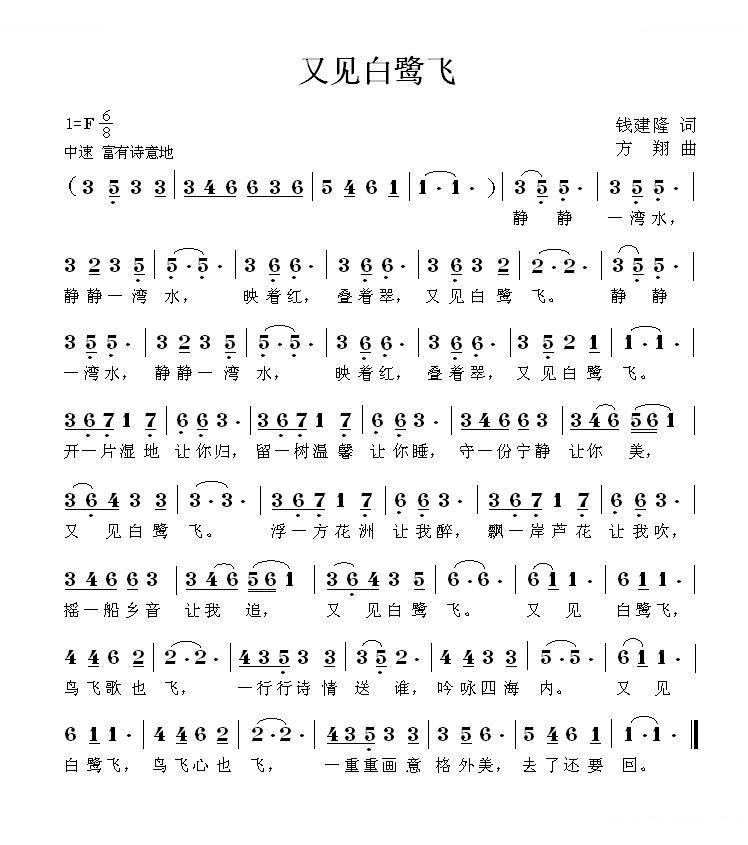 又见白鹭飞
1=F 6/8
钱建隆 词
中速 富有诗意地
方 翔 曲
(3 5 3 3 | 3 4 6 6 3 6 | 5 4 6 1 | 1· 1· ) | 3 5 5· | 3 5 5· |
静 静 一湾水,
3 2 3 5 | 5· 5· | 3 6 6· | 3 6 6· | 3 6 3 2 | 2· 2· | 3 5 5· |
静静一湾 水, 映着红, 叠着翠, 又见白鹭 飞。 静 静
3 5 5· | 3 2 3 5 | 5· 5· | 3 6 6· | 3 6 6· | 3 5 2 1 | 1· 1· |
一湾水, 静静一湾 水, 映着红, 叠着翠, 又见白鹭 飞。
3 6 7 1 7 | 6 6 3· | 3 6 7 1 7 | 6 6 3· | 3 4 6 6 3 | 3 4 6 5 6 1 |
开一片湿地 让你归, 留一树温馨 让你睡, 守一份宁静 让你 美,
3 6 4 3 3 | 3· 3· | 3 6 7 1 7 | 6 6 3· | 3 6 7 1 7 | 6 6 3· |
又 见白鹭 飞。 浮一方花洲 让我醉, 飘一岸芦花 让我吹,
3 4 6 6 3 | 3 4 6 5 6 1 | 3 6 4 3 5 | 6· 6· | 6 1 1 | 6 1 1· |
摇一船乡音 让我 追, 又 见白鹭 飞。 又 见 白鹭飞,
4 4 6 2 | 2· 2· | 4 3 5 3 3 | 3 5 2· | 4 4 6 4 3 | 5· 5· | 6 1 1 |
鸟飞歌也 飞, 一行行诗情 送 谁, 吟咏四海 内。 又 见
6 1 1· | 4 4 6 2 | 2· 2· | 4 3 5 3 3 | 3 5 6· | 5 4 3 1 | 1· 1· ‖
白鹭飞, 鸟飞心也 飞, 一重重画意 格外美, 去了还要 回。